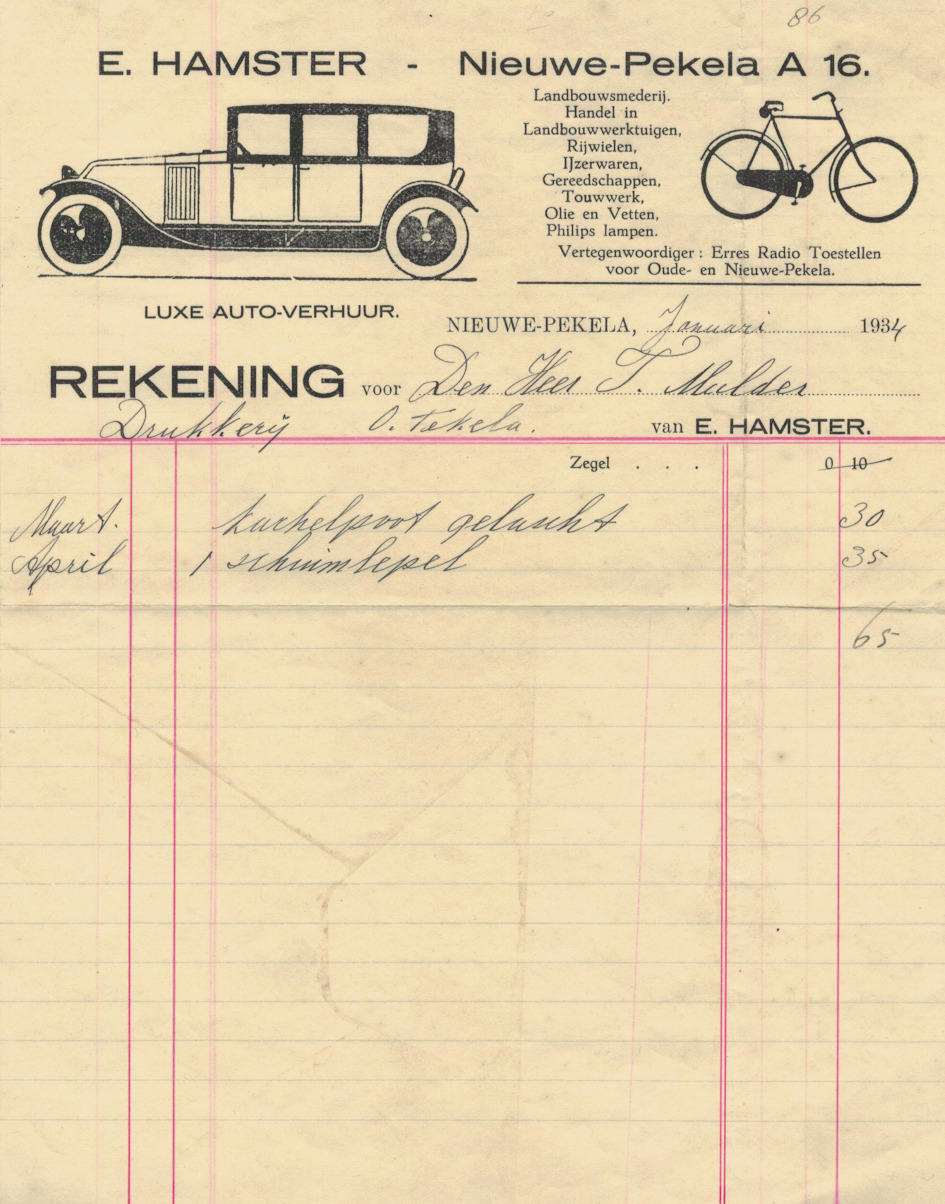 86
E. HAMSTER - Nieuwe-Pekela A 16.
Landbouwsmederij.
Handel in
Landbouwwerktuigen,
Rijwielen,
IJzerwaren,
Gereedschappen,
Touwwerk,
Olie en Vetten,
Philips lampen.
Vertegenwoordiger : Erres Radio Toestellen
voor Oude- en Nieuwe-Pekela.
LUXE AUTO-VERHUUR.
NIEUWE-PEKELA, Januari 1934
REKENING voor Den Heer T. Mulder
Drukkerij O. Pekela.
van E. HAMSTER.
Zegel . . . 0 10
Maart. kachelpoot gelascht 30
April 1 schuimlepel 35
65